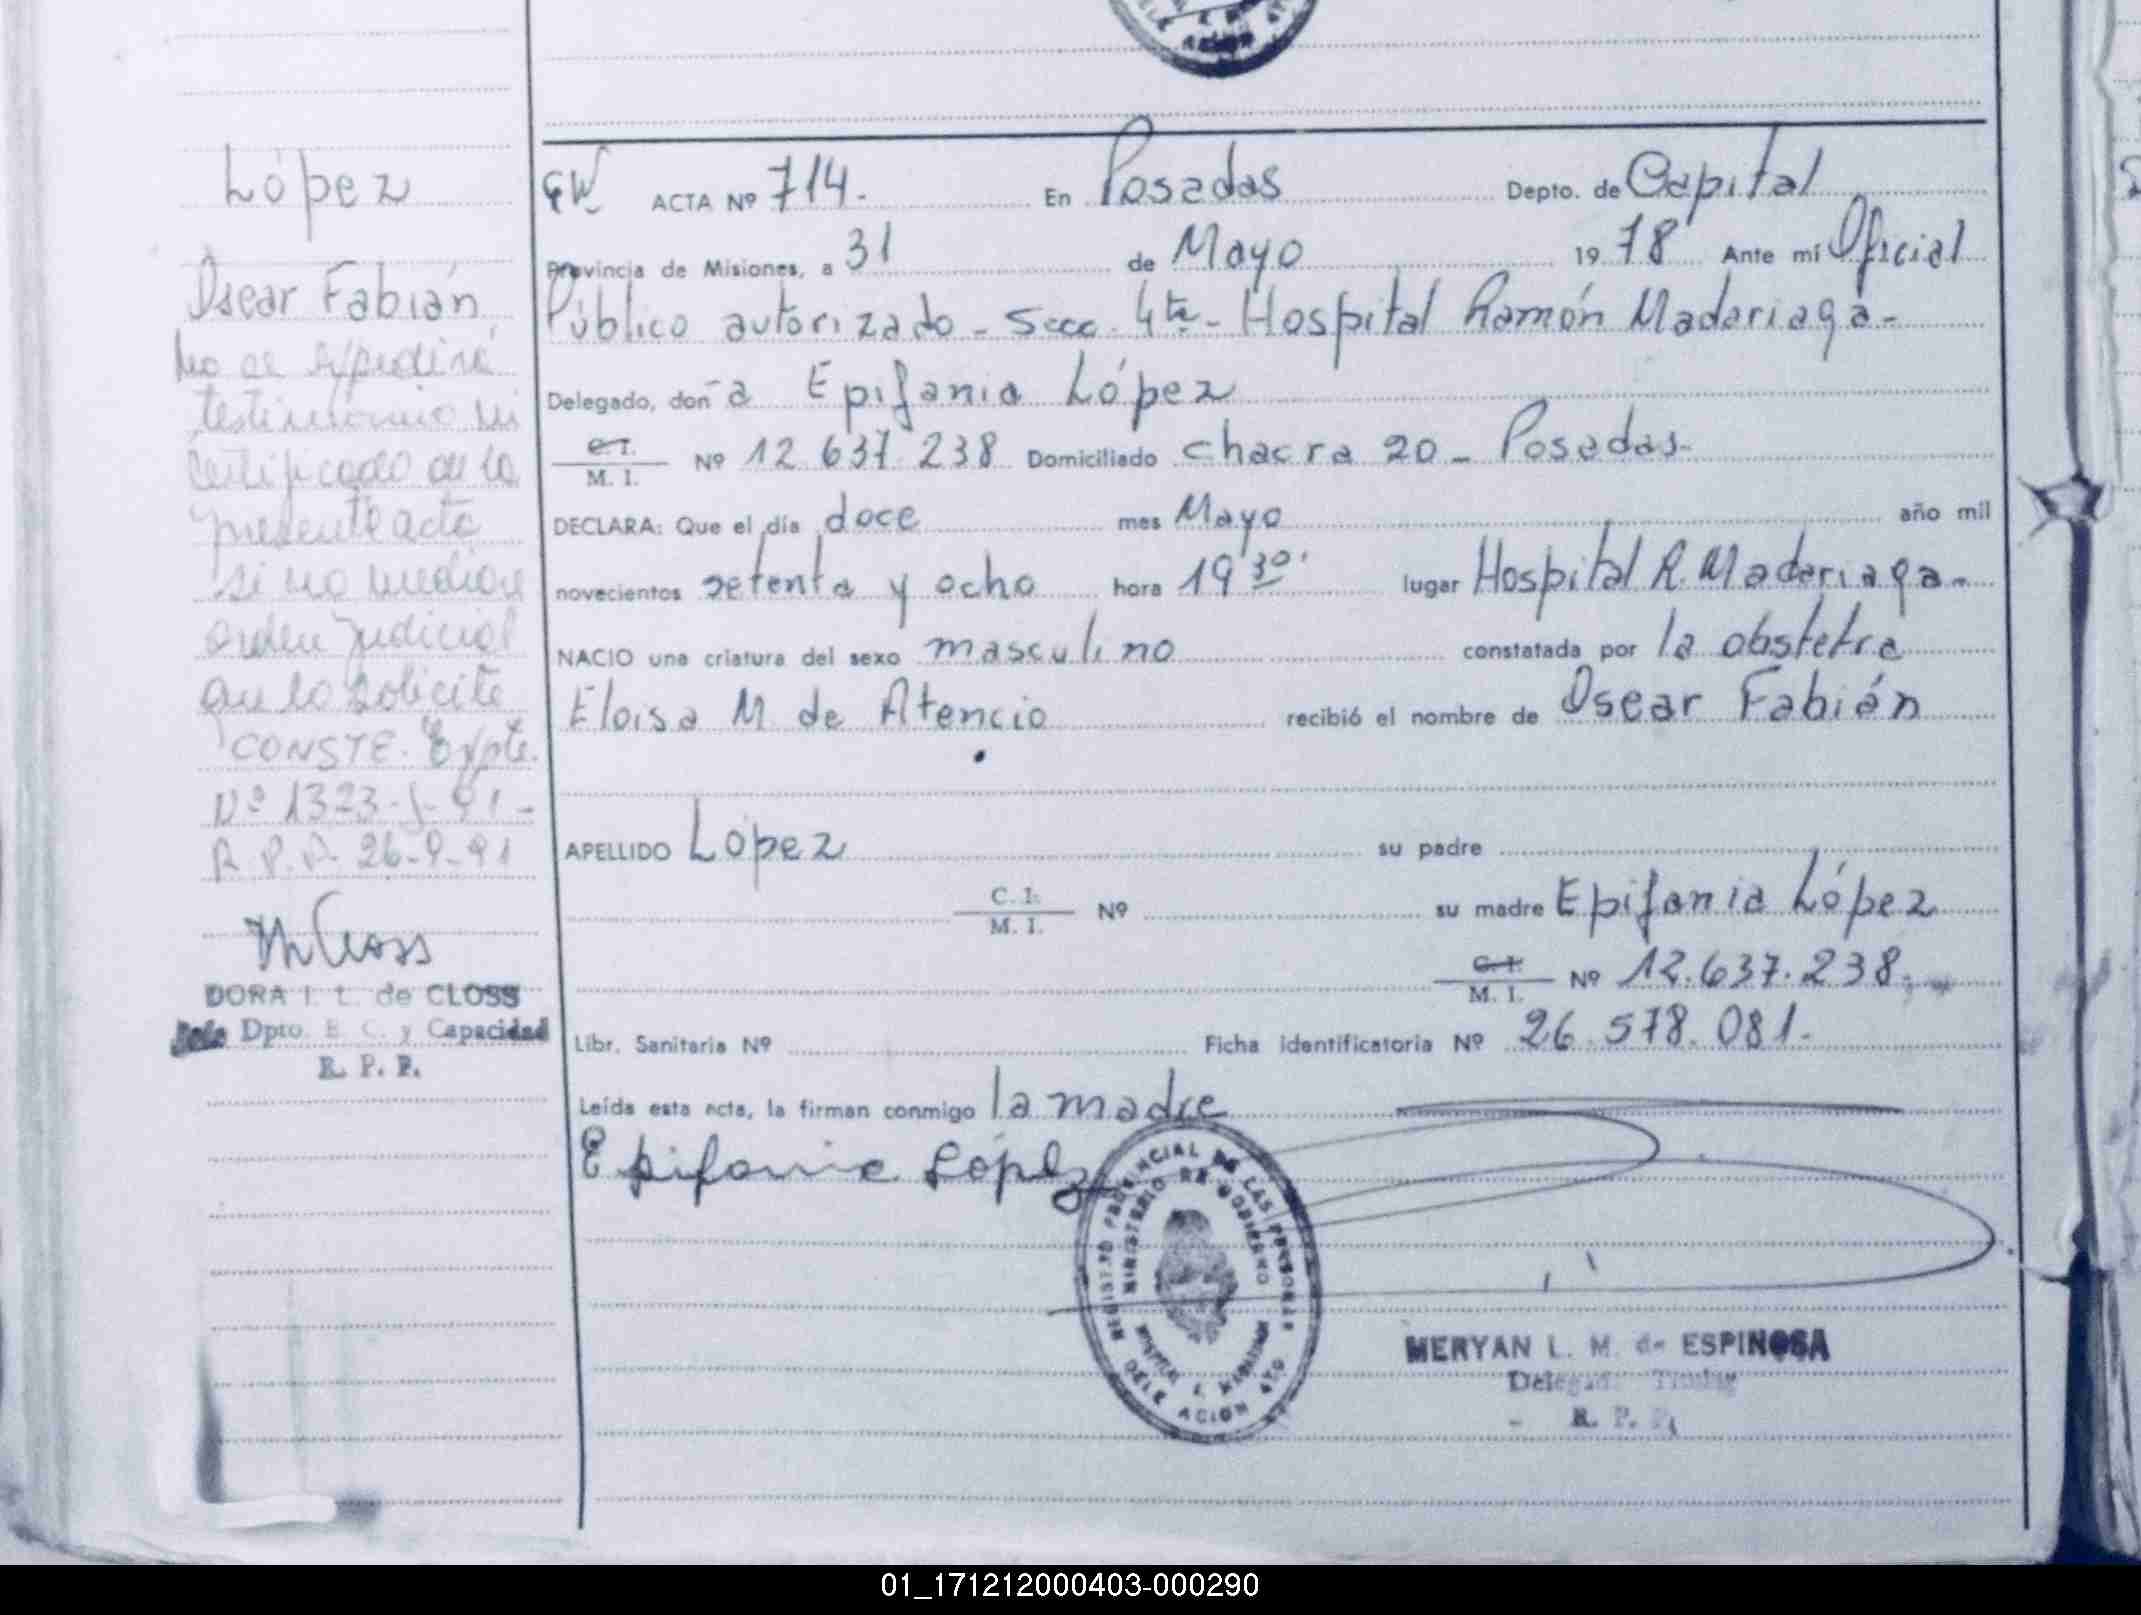 López
Oscar Fabián
No se expedirá
testimonio ni
certificado de la
presente acta
si no media
orden judicial
que lo solicite
CONSTE. Expte.
Nº 1323-J-91-
R.P.P. 26-9-91
DORA I. L. de CLOSS
Dpto. E. C. y Capacidad
R. P. P.
ACTA Nº 714. En Posadas Depto. de Capital
Provincia de Misiones, a 31 de Mayo 1978 Ante mí Oficial
Público autorizado - Secc. 4ta - Hospital Ramón Madariaga -
Delegado, doña Epifania López
C.I.
M. I. Nº 12.637.238 Domiciliado chacra 20 - Posadas -
DECLARA: Que el día doce mes Mayo año mil
novecientos setenta y ocho hora 19 30' lugar Hospital R. Madariaga -
NACIO una criatura del sexo masculino constatada por la obstetra
Eloisa M de Atencio recibió el nombre de Oscar Fabián
APELLIDO López su padre
C. I.
M. I. Nº su madre Epifania López
C. I.
M. I. Nº 12.637.238.
Libr. Sanitaria Nº Ficha identificatoria Nº 26.578.081.
Leída esta acta, la firman conmigo la madre
Epifania López
REGISTRO PROVINCIAL DE LAS PERSONAS
MINISTERIO DE GOBIERNO
MERYAN L. M. de ESPINOSA
R. P. P.
01_171212000403-000290